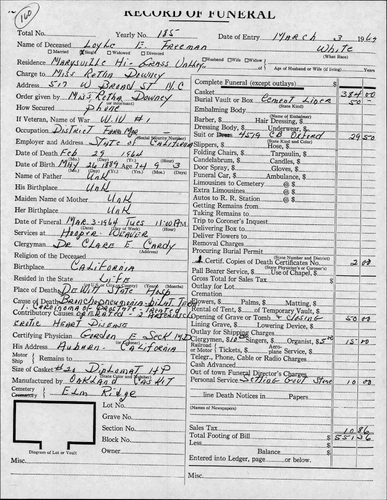 160
RECORD OF FUNERAL
Total No. Yearly No. 185 Date of Entry March 3 1964
Name of Deceased Loyle E. Freeman White
(What Race)
Residence Marysville Hi- Grass Valley
Charge to Miss Retha Downey
Address 517 W Broad St N.C
Order given by Miss Retha Downey
How Secured Phone
If Veteran, Name of War W.W #1
Occupation District Fore Man
Employer and Address State of California
Date of Death Feb 29 1964
Date of Birth May 26 1889 74 9 3
Name of Father Unk
His Birthplace Unk
Maiden Name of Mother Unk
Her Birthplace Unk
Date of Funeral Mar. 3-1964 Tues 11:00 A.M.
Services at Hooper Weaver
Clergyman Dr Clare E Cardy
Religion of the Deceased
Birthplace California
Resided in the State Life
Place of Death DeWitt State Hosp
Cause of Death Bronchopneumonia-bilat
Contributory Causes
Heart Disease
Certifying Physician Gordon E Seck M.D
His Address Auburn. California
Motor
Ship Remains to
Size of Casket Diplomat
Manufactured by Oakland
Cemetery
Crematory Elm Ridge
Lot No.
Grave No.
Section No.
Block No.
Owner
Diagram of Lot or Vault
Misc.
Age of Husband or Wife (if living)
Complete Funeral (except outlays) $
Casket 384 00
Burial Vault or Box Cement Liner 50 -
(State Kind)
Embalming Body
Barber, Hair Dressing, $
Dressing Body, Underwear, $
Suit or Dress 4579 29 50
(State Kind and Color)
Slippers, $ Hose, $
Folding Chairs, $ Tarpaulin, $
Candelabrum, $ Candles, $
Door Spray, $ Gloves, $
Funeral Car, $ Ambulance, $
Limousines to Cemetery @ $
Extra Limousines @ $
Autos to R. R. Station @ $
Getting Remains from
Taking Remains to
Trip to Coroner's Inquest
Delivering Box to
Deliver Flowers to
Removal Charges
Procuring Burial Permit
(State Number and District)
1 Certif. Copies of Death Certificates No. 2 00
(State Physician's or Coroner's)
Pall Bearer Service, $ Use of Chapel, $
Gross Total for Sales Tax $
Outlay for Lot
Cremation
Flowers, $ Palms, $ Matting, $
Rental of Tent, $ of Temporary Vault, $
Opening of Grave or Tomb & Closing 50 00
Lining Grave, $ Lowering Device, $
Outlay for Shipping Charges
Clergymen, $10 Singers, $ Organist, $5 00 15 00
Railroad
or Motor Tickets, $ Aeroplane Service, $
Telegr., Phone, Cable or Radio Charges
Cash Advanced
Out of town Funeral Director's Charges
Personal Service Setting Govt Stone 10 00
line Death Notices in Papers
(Names of Newspapers)
Sales Tax 10 86
Total Footing of Bill $ 551 36
Less
Balance $
Entered into Ledger, page or below.
Misc.